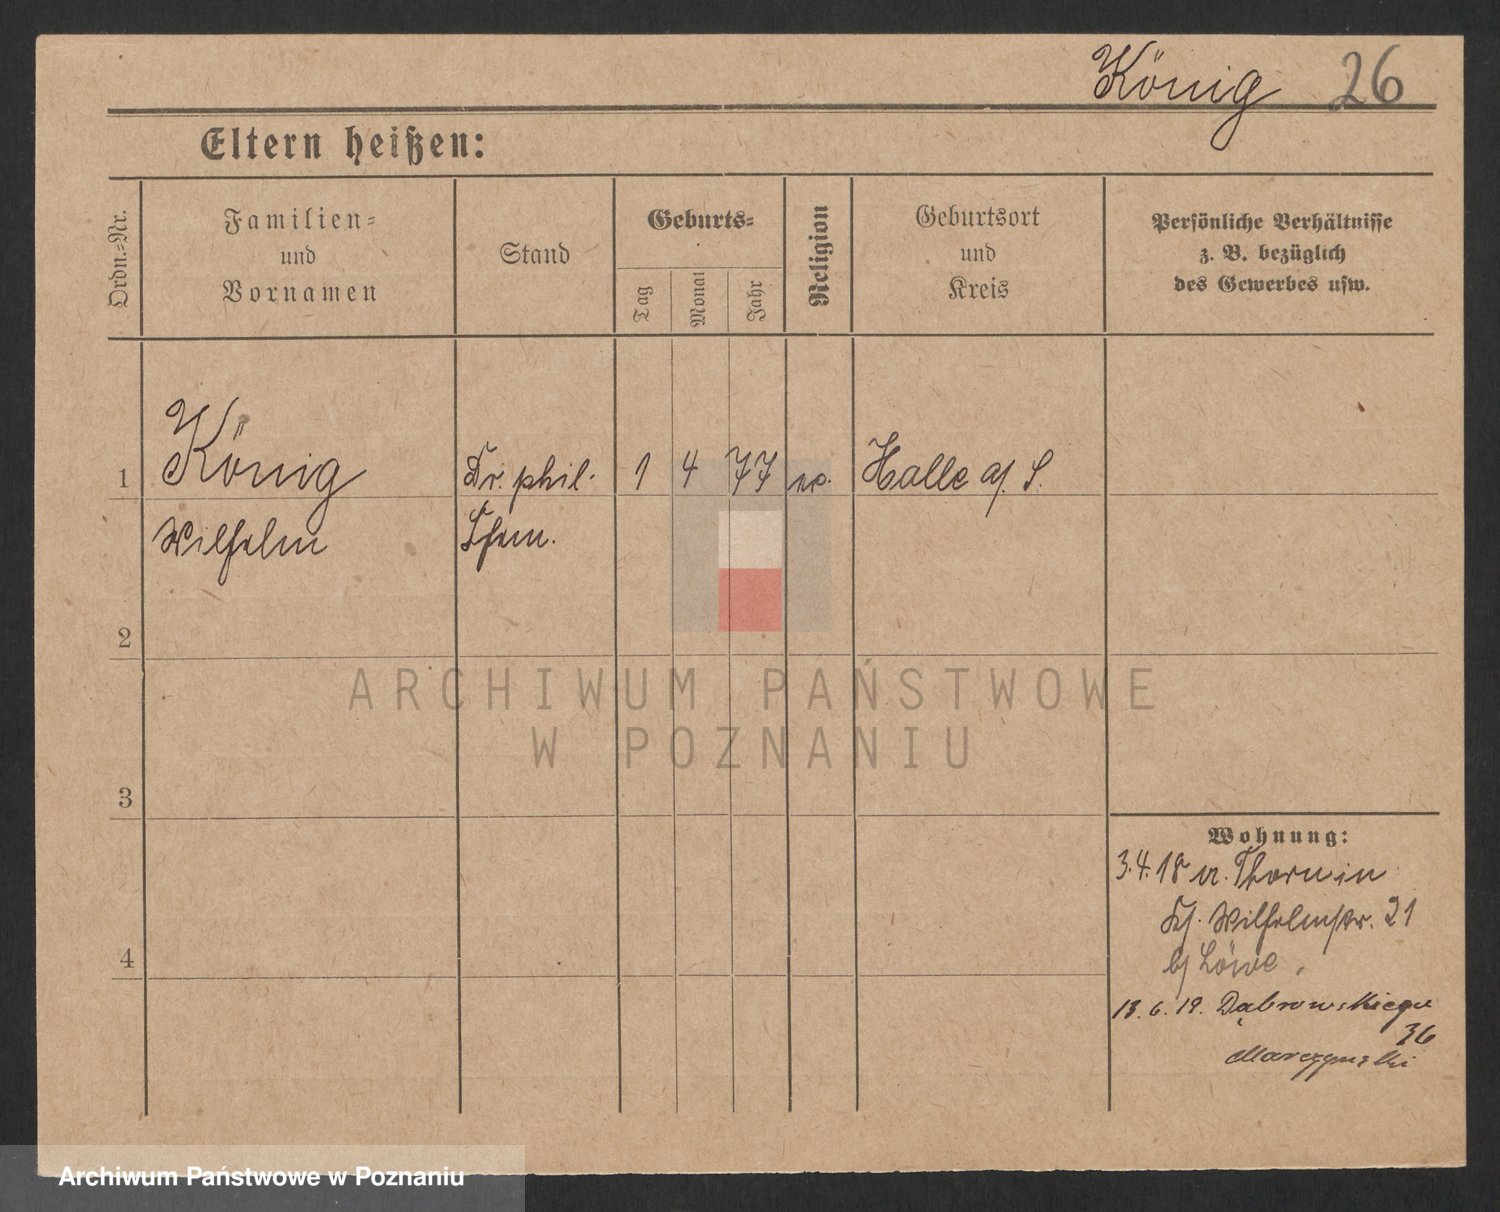 König 26
Eltern heißen:
Ordn.-Nr.
Familien-
und
Vornamen
Stand
Geburts-
Tag
Monat
Jahr
Religion
Geburtsort
und
Kreis
Persönliche Verhältnisse
z. B. bezüglich
des Gewerbes usw.
1 König Dr. phil. 1 4 77 ev. Halle a/. S.
Wilhelm Chem.
2
3
4
Wohnung:
3.4.18 v. Thorn in
Wilhelmstr. 21
b/ Löwe
13.6.19. Dąbrowskiego
36
ARCHIWUM PAŃSTWOWE
W POZNANIU
Archiwum Państwowe w Poznaniu